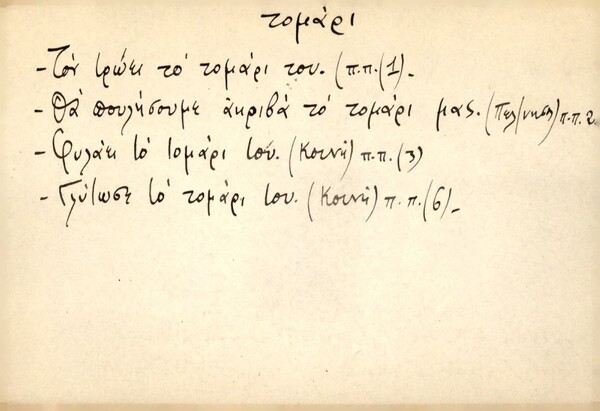 τομάρι
- Τὸν τρώει τὸ τομάρι του. (π.π.(1).
- Θὰ πουλήσουμε ἀκριβὰ τὸ τομάρι μας. (Πελ/νησ) π.π. 2
- Φυλάει τὸ τομάρι του. (Κοινή) π.π. (3)
- Γλύτωσε τὸ τομάρι του. (Κοινή) π. π. (6).